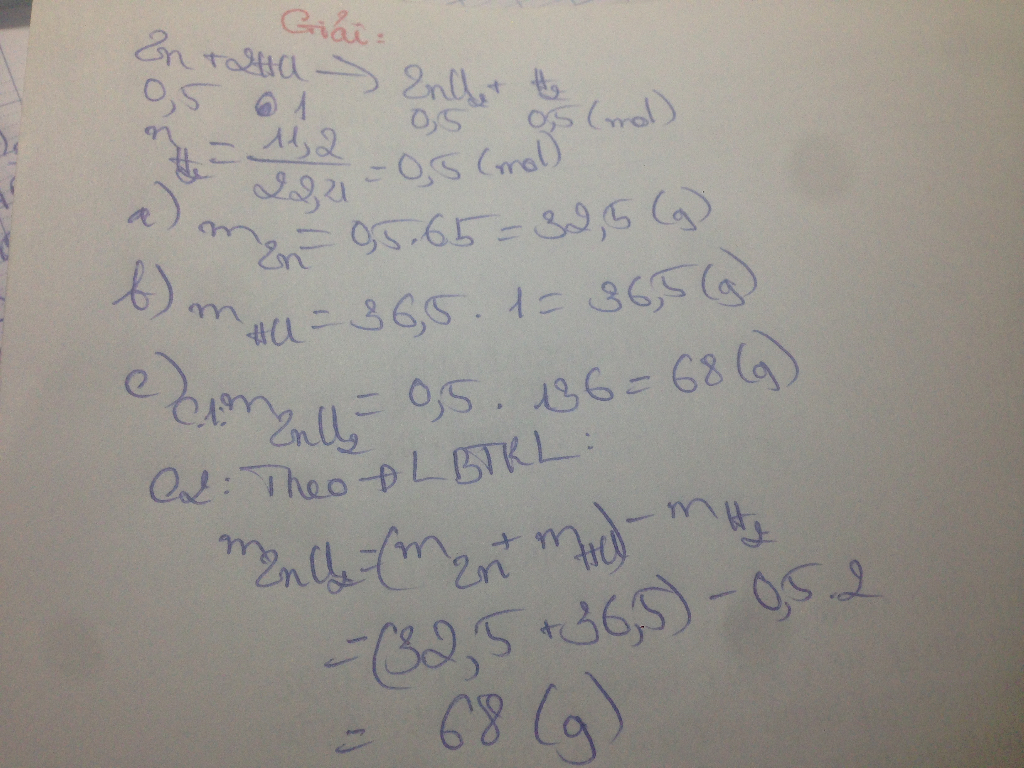 Giải:
Zn + 2HCl → ZnCl₂ + H₂
0,5 1 0,5 0,5 (mol)
n H₂ = 11,2 / 22,4 = 0,5 (mol)
a) m Zn = 0,5.65 = 32,5 (g)
b) m HCl = 36,5 . 1 = 36,5 (g)
c) C1: m ZnCl₂ = 0,5 . 136 = 68 (g)
C2: Theo ĐLBTKL:
m ZnCl₂ = (m Zn + m HCl) - m H₂
= (32,5 + 36,5) - 0,5.2
= 68 (g)